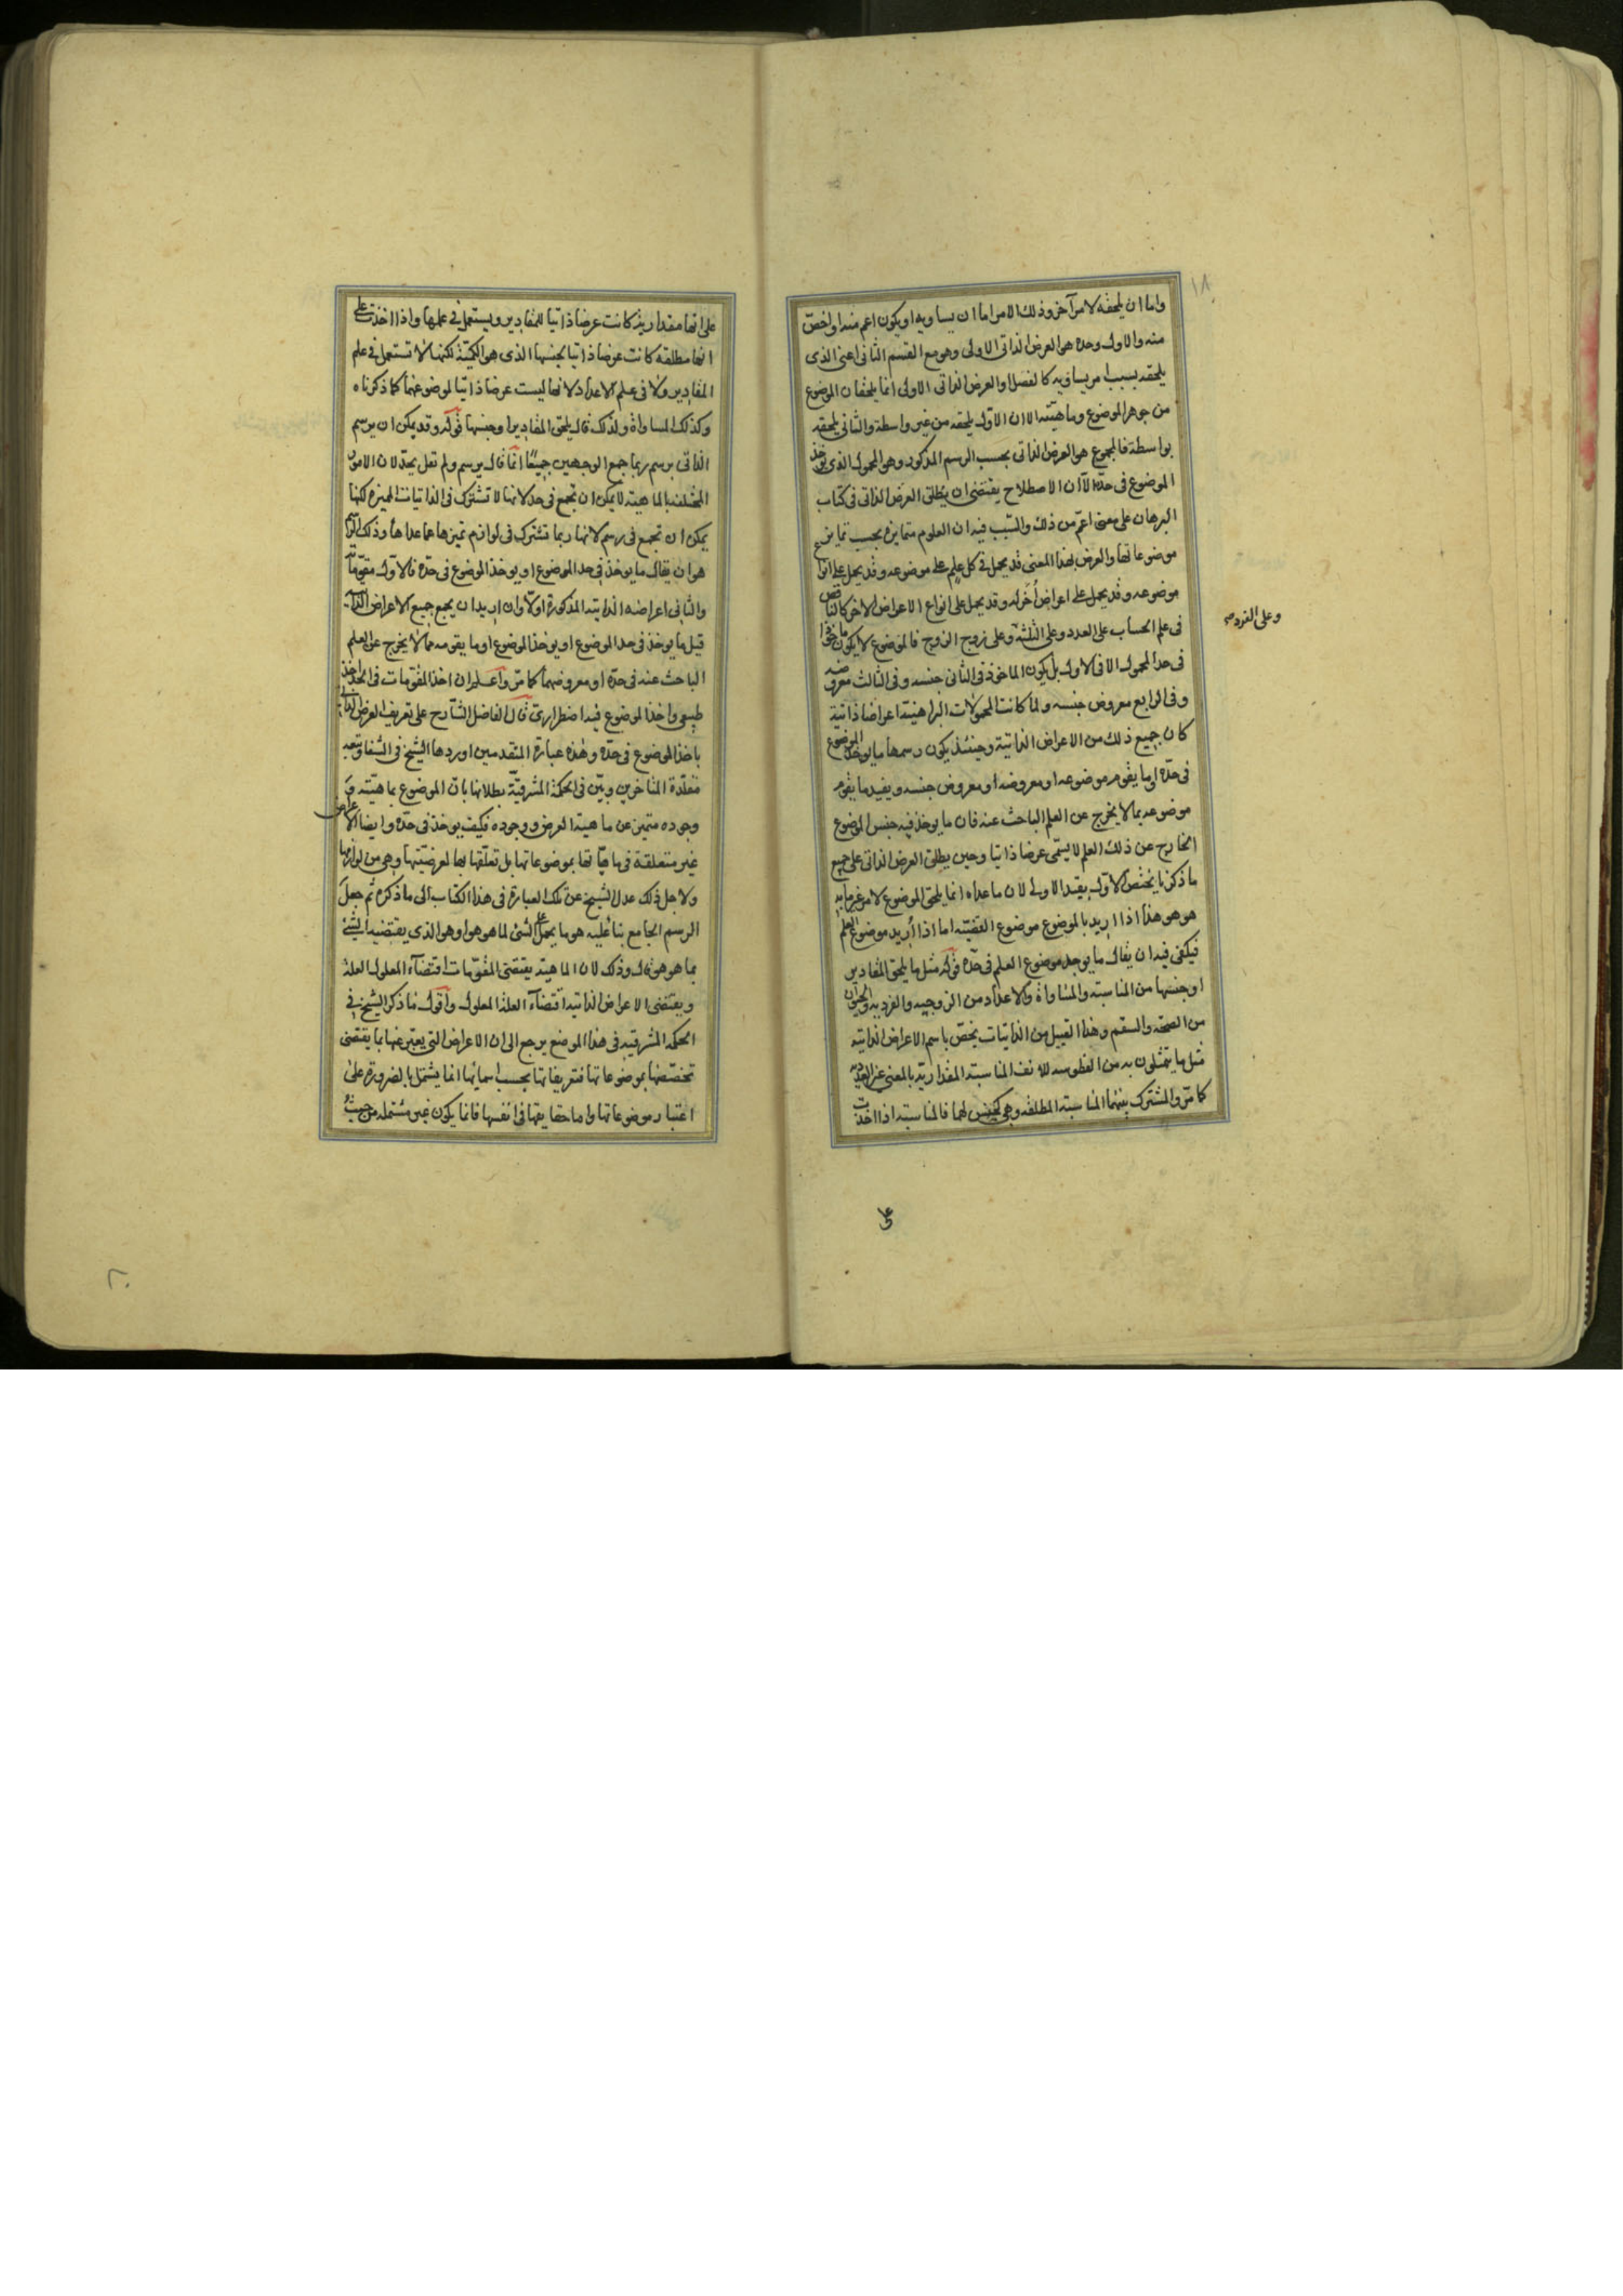 ١٨
واما ان يلحقه لامر آخر وذلك الامر اما ان يساويه او يكون اعم منه او اخص
منه والاول وحده هو العرض الذاتى الاولى وهو مع القسم الثانى اعنى الذى
يلحقه بسبب امر يساويه كالفصل او العرض الذاتى الاولى انما يلحقان الموضوع
من جوهر الموضوع وماهيته الا ان الاول يلحقه من غير واسطة والثانى يلحقه
بواسطة فالمجموع هو العرض الذاتى بحسب الرسم المذكور وهو المحمول الذى يوخذ
الموضوع فى حده الا ان الاصطلاح يقتضى ان يطلق العرض الذاتى فى كتاب
البرهان على معنى اعم من ذلك والسبب فيه ان العلوم متمايزة بحسب تمايز
موضوعاتها والعرض بهذا المعنى قد يحمل فى كل علم على موضوعه وقد يحمل على انواع
موضوعه وقد يحمل على اعراض اخر له وقد يحمل على انواع الاعراض الاخر كالناقص
فى علم الحساب على العدد وعلى الثلثة وعلى زوج الزوج فالموضوع لا يكون ماخوذا
وعلى الفرد صح
فى حد المحمول الا فى الاول بل يكون الماخوذ فى الثانى جنسه وفى الثالث معروضه
وفى الرابع معروض جنسه ولما كانت المحمولات البراهنية اعراضا ذاتية
كان جميع ذلك من الاعراض الذاتية وحينئذ يكون رسمها ما يوخذ الموضوع
فى حده او ما يقوم موضوعه او معروضه او معروض جنسه ويقيد ما يقوم
موضوعه بما لا يخرج عن العلم الباحث عنه فان ما يوخذ فيه جنس الموضوع
الخارج عن ذلك العلم لا يسمى عرضا ذاتيا وحين يطلق العرض الذاتى على جميع
ما ذكرنا يختص الاول بقيد الاولى لان ما عداه انما يلحق الموضوع لامر غير ما به
هو هو هذا اذا اريد بالموضوع موضوع القضية اما اذا اريد موضوع العلم
فيكفى فيه ان يقال ما يوجد موضوع العلم فى حده قوله مثل ما يلحق المقادير
او جنسها من المناسبة والمساواة والاعداد من الزوجية والفردية والحيوان
من الصحة والسقم وهذا القبيل من الذاتيات يخص باسم الاعراض الذاتية
مثل ما يتمثلون به من الفطوسة للانف المناسبة المقدارية بالمعنى غير العددية
كما مر والمشترك بينهما المناسبة المطلقة وهى كجنس لهما فالمناسبة اذا اخذت
على
على انها مقدارية كانت عرضا ذاتيا للمقادير ويستعمل فى علمها واذا اخذت على
انها مطلقة كانت عرضا ذاتيا لجنسها الذى هو الكمية لكنها لا تستعمل فى علم
المقادير ولا فى علم الاعداد لانها ليست عرضا ذاتيا لموضوعهما كما ذكرناه
وكذلك المساواة ولذلك قال يلحق المقادير او جنسها قوله وقد يمكن ان يرسم
الذاتى برسم ربما جمع الوجهين جميعًا انما قال يرسم ولم تقل يحد لان الامور
المختلفة بالماهية لا يمكن ان تجمع فى حد لانها لا تشترك فى الذاتيات المميزة لكنها
يمكن ان تجمع فى رسم لانها ربما تشترك فى لوازم تميزها عما عداها وذلك الرسم
هو ان يقال ما يوخذ فى حد الموضوع او يوخذ الموضوع فى حده فالاول مقوماته
والثانى اعراضه الذاتية المذكورة اولا وان اريد ان يجمع جميع الاعراض الذاتية
قيل ما يوخذ فى حد الموضوع او يوخذ الموضوع او ما يقومه مما لا يخرج عن العلم
الباحث عنه فى حده او معروضهما كما مر واعلم ان اخذ المقومات فى الحد اخذ
طبيعى واخذ الموضوع فيه اضطرارى قال الفاضل الشارح على تعريف العرض الذاتى
باخذ الموضوع فى حده وهذه عبارة المتقدمين اوردها الشيخ فى الشفا وتبعه
مقلدة المتاخرين وبين فى الحكمة المشرقية بطلانها بان الموضوع بماهيته و
وجوده متميز عن ماهية العرض ووجوده فكيف يوخذ فى حده وايضا الاعراض
غير متعلقة فى ماهياتها بموضوعاتها بل تعلقها بها لعرضيتها وهى من لوازمها
ولاجل ذلك عدل الشيخ عن تلك العبارة فى هذا الكتاب الى ما ذكره ثم جعل
الرسم الجامع بناء عليه هو ما يحمل على الشئ لما هو هو او هو الذى يقتضيه الشئ
بما هو هو قال وذلك لان الماهية يقتضى المقومات اقتضآء المعلول العلة
ويقتضى الاعراض الذاتية اقتضآء العلة المعلول واقول ما ذكر الشيخ فى
الحكمة المشرقية فى هذا الموضع يرجع الى ان الاعراض التى يعبر عنها بما يقتضى
تخصصها بموضوعاتها فتعريفاتها بحسب اسمائها انما يشتمل بالضرورة على
اعتبار موضوعاتها واما حقايقها فى انفسها فانما يكون غير مشتملة من حيث
٢٠